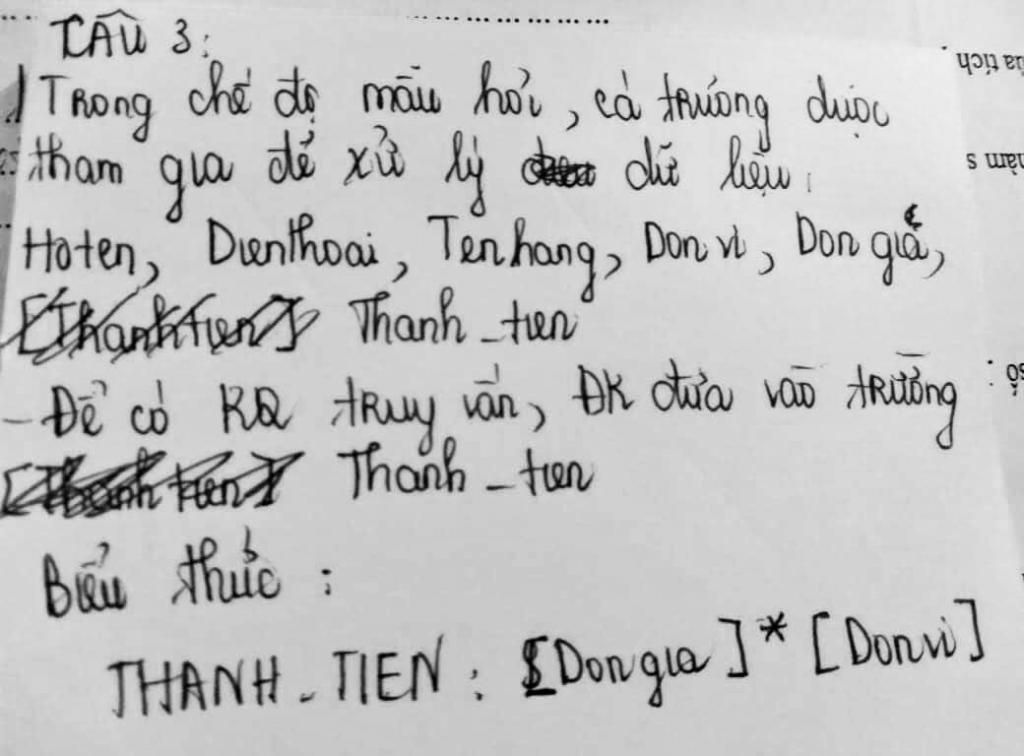 CÂU 3:
Trong chế độ mẫu hỏi, cá trường được
tham gia để xử lý dữ liệu:
Hoten, Dienthoai, Tenhang, Donvi, Dongiá,
[Thanhtien] Thanh_tien
- Để có KQ truy vấn, ĐK đưa vào trường
[Thanhtien] Thanh_tien
Biểu thức :
THANH_TIEN : [Dongia] * [Donvi]
ủa tích
hàm s
số :